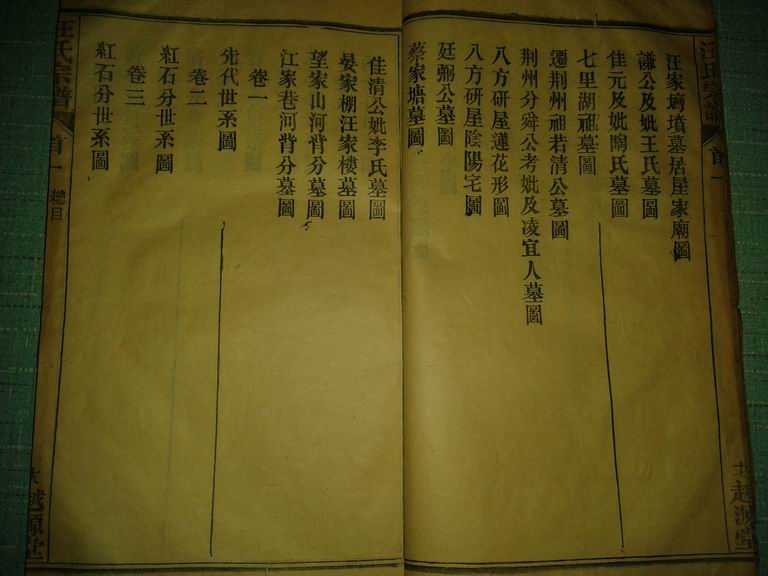 汪家塆墳墓居屋家廟圖
謙公及妣王氏墓圖
佳元及妣陶氏墓圖
七里湖祖墓圖
遷荆州祖若清公墓圖
荆州分舜公考妣及凌宜人墓圖
八方研屋蓮花形圖
八方研屋陰陽宅圖
廷弼公墓圖
蔡家塘墓圖
佳清公妣李氏墓圖
晏家棚汪家樓墓圖
望家山河背分墓圖
江家巷河背分墓圖
卷一
先代世系圖
卷二
紅石分世系圖
卷三
紅石分世系圖
汪氏宗譜
首一
總目
越源堂
汪氏宗譜
首一
越源堂